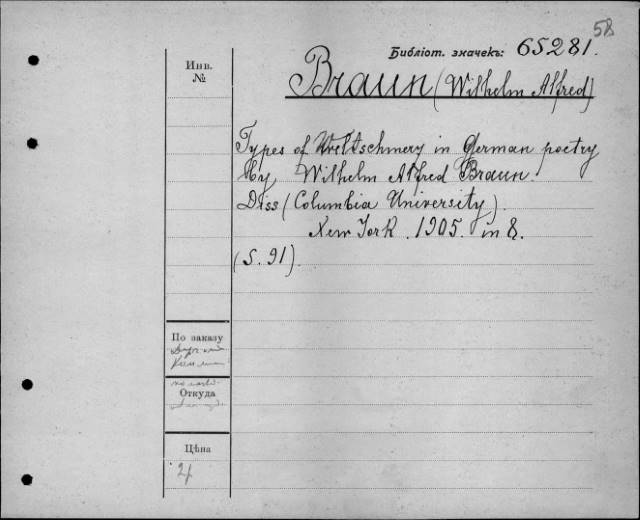 58
Библіот. значекъ: 65281.
Инв.
№
Braun (Wilhelm Alfred)
Types of Weltschmerz in German poetry
by Wilhelm Alfred Braun.
Diss (Columbia University).
New York. 1905. in 8.
(S. 91).
По заказу
Откуда
Цѣна